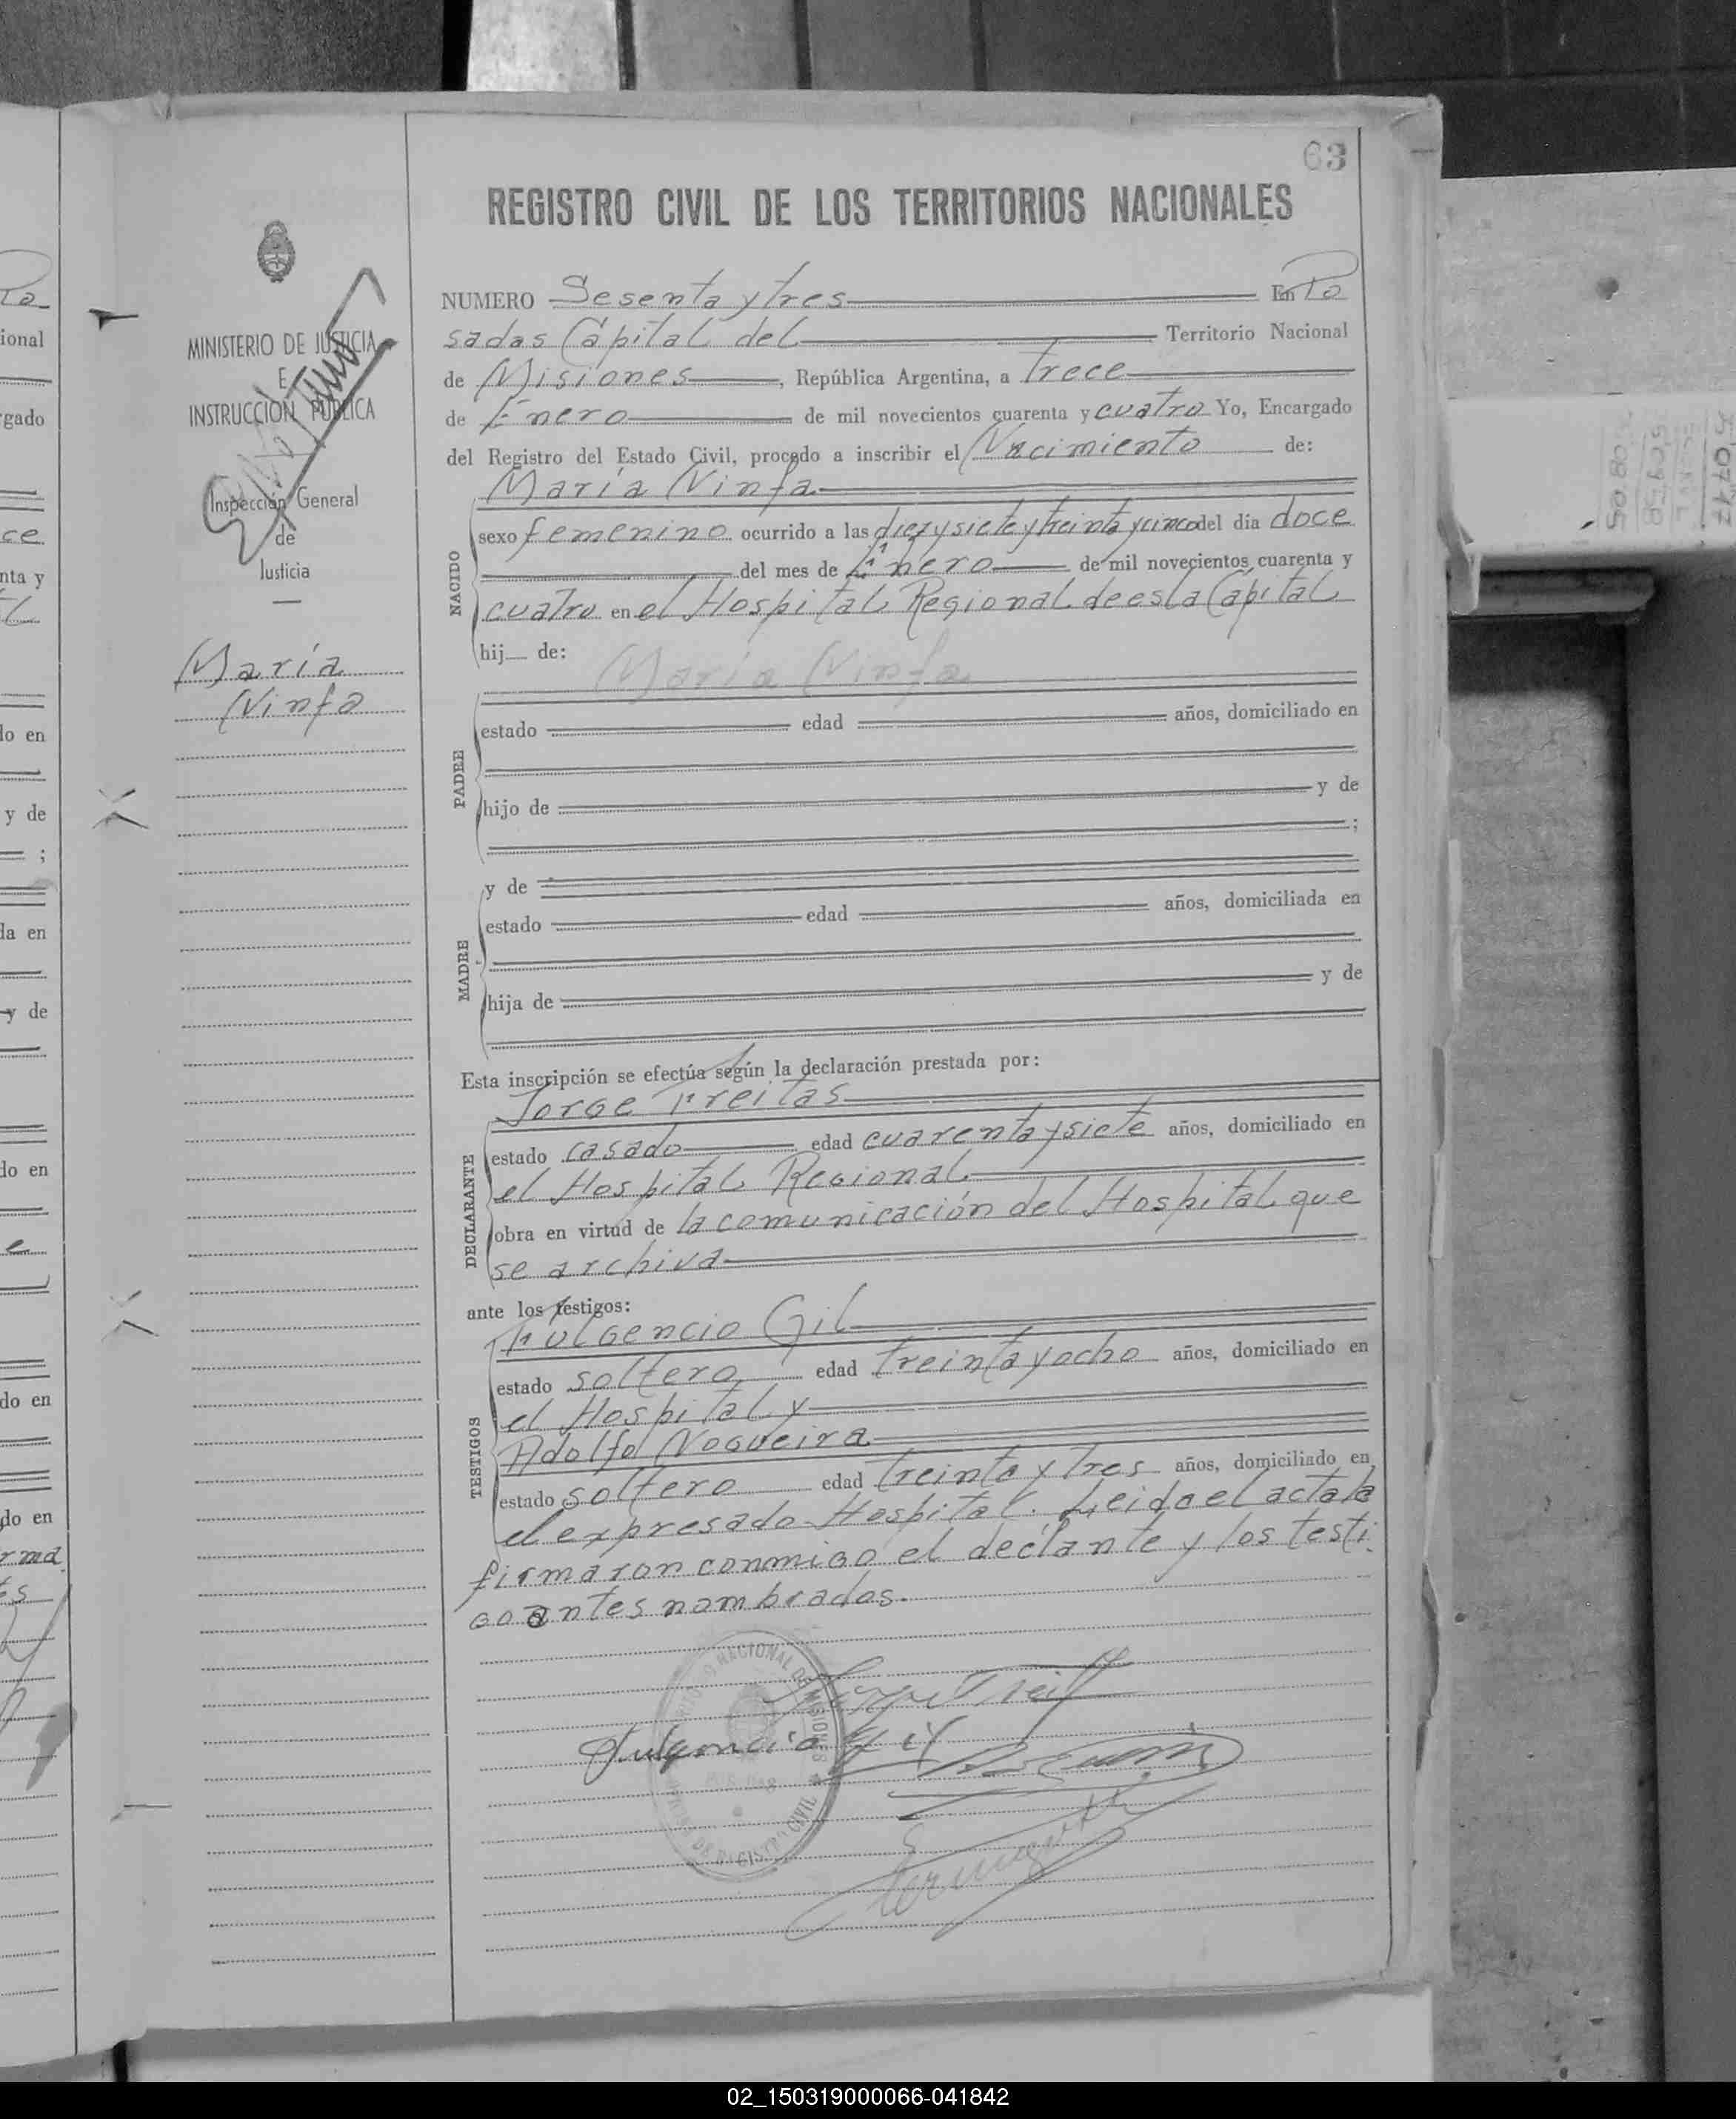 63
REGISTRO CIVIL DE LOS TERRITORIOS NACIONALES
MINISTERIO DE JUSTICIA
E
INSTRUCCIÓN PÚBLICA
Inspección General
de
Justicia
María
Ninfa
NUMERO Sesenta y tres En Po
sadas Capital del Territorio Nacional
de Misiones, República Argentina, a trece
de Enero de mil novecientos cuarenta y cuatro Yo, Encargado
del Registro del Estado Civil, procedo a inscribir el Nacimiento de:
María Ninfa
NACIDO
sexo femenino ocurrido a las diez y siete y treinta y cinco del día doce
del mes de Enero de mil novecientos cuarenta y
cuatro en el Hospital Regional de esta Capital
hij de:
María Ninfa
PADRE
estado edad años, domiciliado en
hijo de y de
;
MADRE
y de
estado edad años, domiciliada en
hija de y de
Esta inscripción se efectúa según la declaración prestada por:
Jorge Freitas
DECLARANTE
estado casado edad cuarenta y siete años, domiciliado en
el Hospital Regional
obra en virtud de la comunicación del Hospital que
se archiva
ante los testigos:
Fulgencio Gil
TESTIGOS
estado soltero edad treinta y ocho años, domiciliado en
el Hospital y
Adolfo Nogueira
estado soltero edad treinta y tres años, domiciliado en
el expresado Hospital. Leida el acta la
firmaron conmigo el declante y los testi
goantes nombrados.
Jorge Freit
Fulgencio Gil
ional
rgado
ce
nta y
do en
y de
;
da en
y de
do en
e
do en
do en
rma
es
02_150319000066-041842